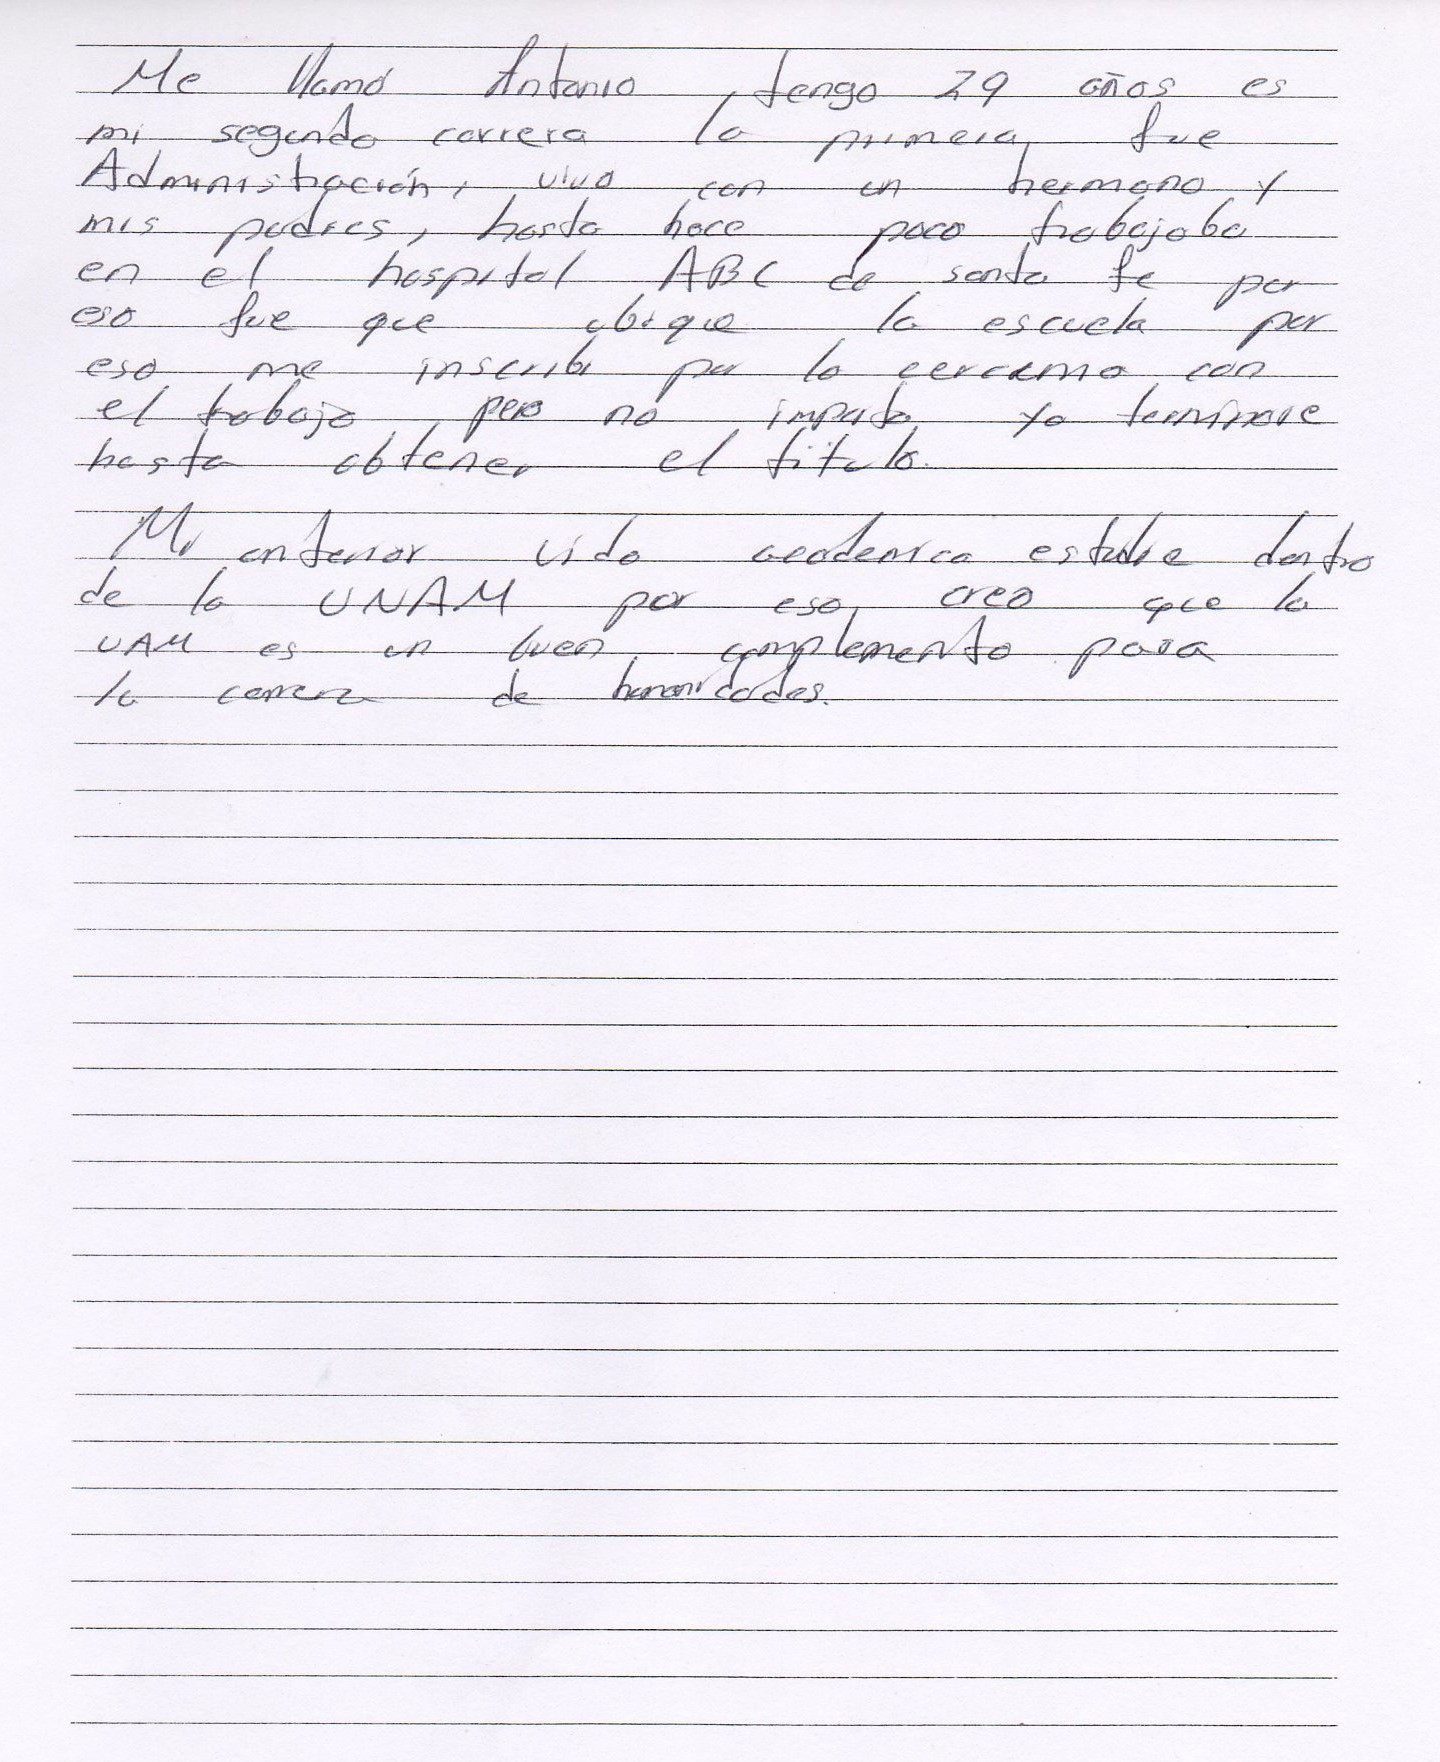 Me llamó Antonio, tengo 29 años es
mi segunda carrera la primera, fue
Administración, vivo con un hermano y
mis padres, hasta hace poco trabajaba
en el hospital ABC de santa fe por
eso fue que ubique la escuela por
eso me inscribi por lo cercano con
el trabajo pero no importa yo terminare
hasta obtener el título.
Mi anterior vida academica estube dentro
de la UNAM por eso, creo que la
UAM es un buen complemento para
la carrera de humanidades.